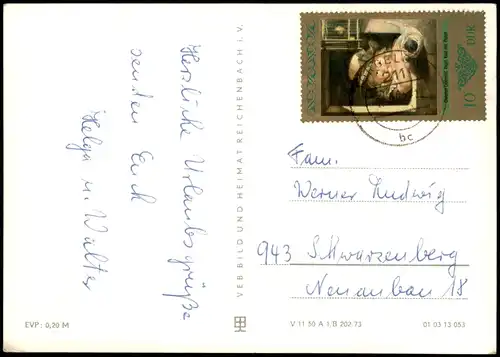 Herzliche Urlaubsgrüße
senden Euch
Helga u. Walter
VEB BILD UND HEIMAT REICHENBACH I. V.
DDR
10
bc
Fam.
Werner Ludwig
943 Schwarzenberg
Neuanbau 18
EVP: 0,20 M
V 11 50 A 1/B 202/73
01 03 13 053